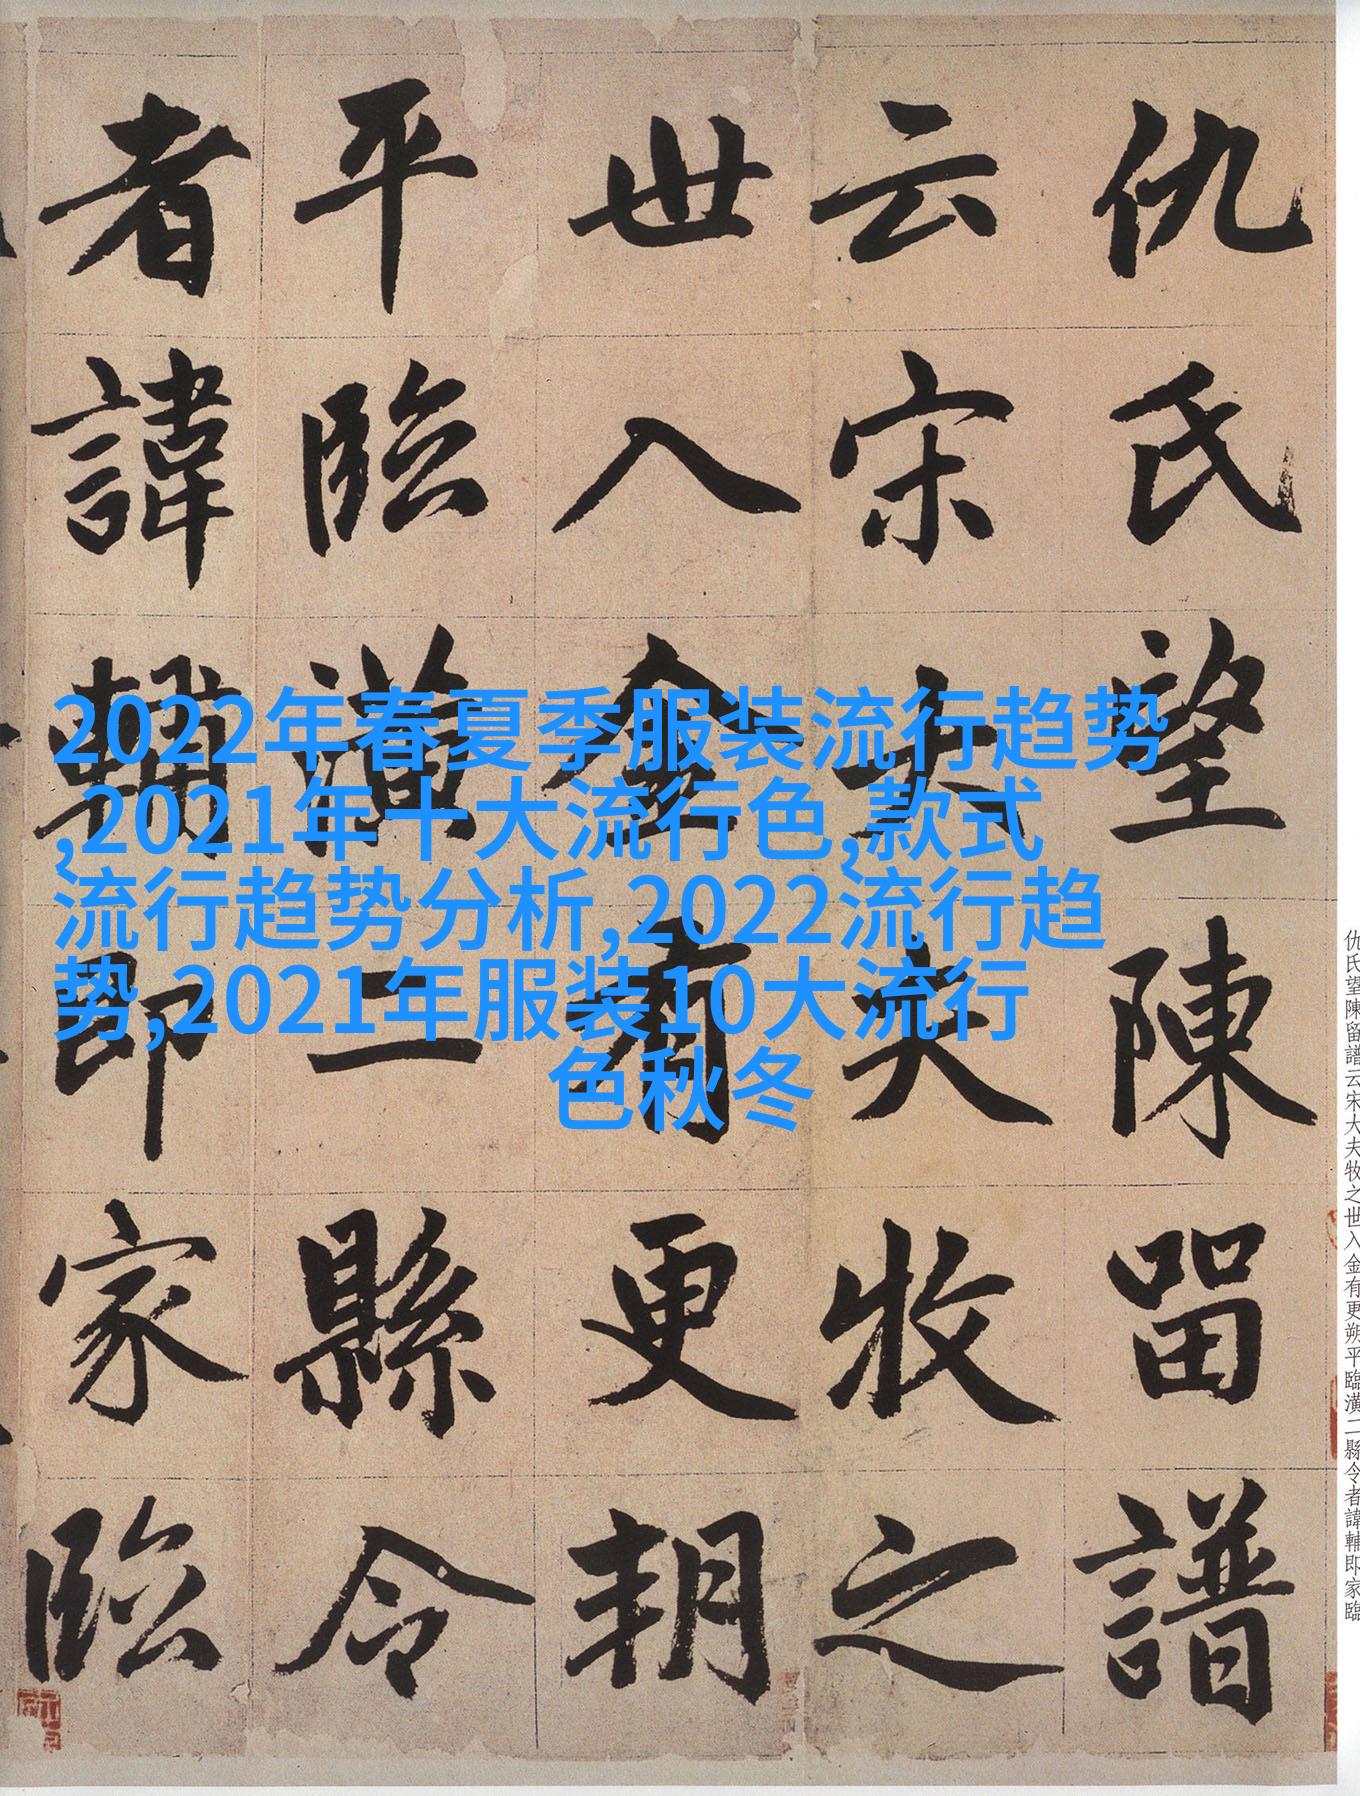 仇氏望陳留譜
云宋大夫牧之
世入金有更朔
平臨潢二縣令
者諱輔即家臨
2022年春夏季服装流行趋势
,2021年十大流行色,款式
流行趋势分析,2022流行趋
势,2021年服装10大流行
色秋冬
仇氏望陳留譜云宋大夫牧之世入金有更朔平臨潢二縣令者諱輔即家臨